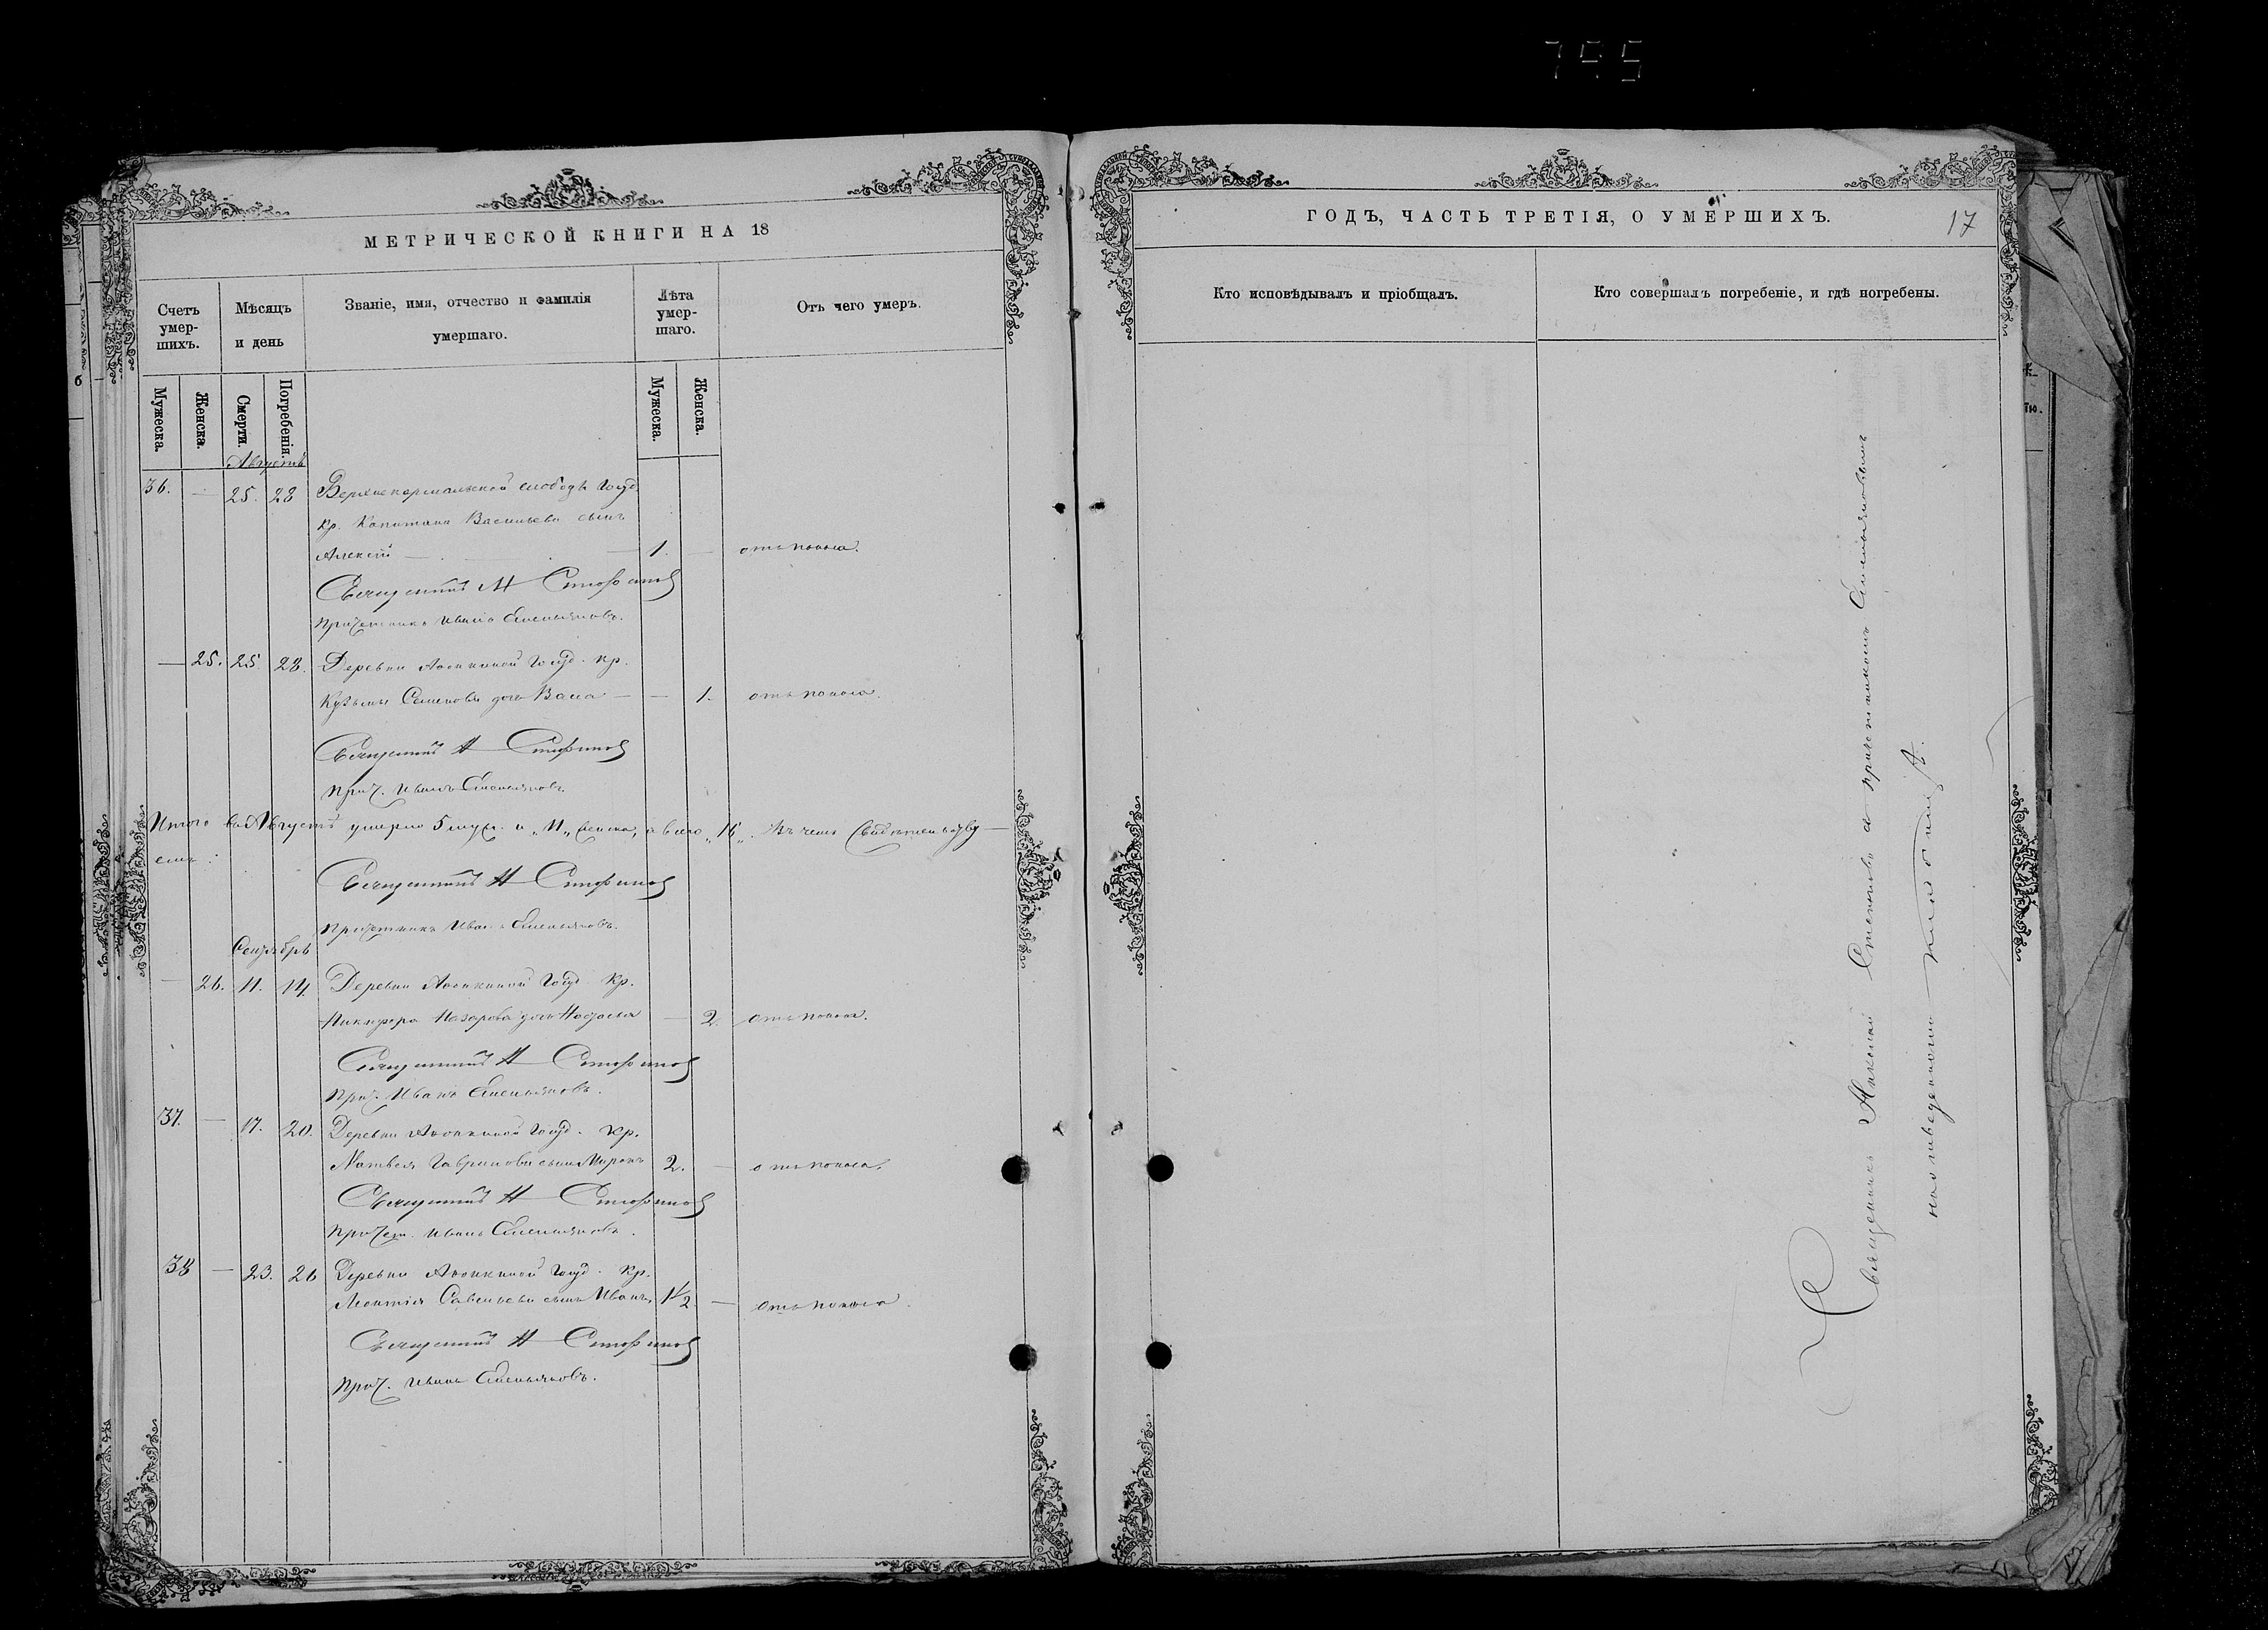 755
МЕТРИЧЕСКОЙ КНИГИ НА 18
Счетъ умер-шихъ.
Мѣсяцъ и день
Званіе, имя, отчество и фамилія умершаго.
Лѣта умер-шаго.
Отъ чего умеръ.
Мужеска.
Женска.
Смерти.
Погребенія.
Мужеска.
Женска.
Августъ
36. — 25. 28 слободы Госуд.
Кр. Капитона Васильева сынъ
Алексѣй — 1. — отъ поноса.
Священникъ
Причетникъ Иванъ Емельяновъ.
— 25. 25. 28. Деревни Госуд. Кр.
Кузьмы Семенова дочь Васса — — 1. отъ поноса.
Священникъ
Прич. Иванъ Емельяновъ
Итого въ Августѣ умерло 5 муж. и „11„ женска, а всего „16„ Въ чемъ свидѣтельству-
емъ:
Священникъ
Причетникъ Иванъ Емельяновъ.
Сентябрь
— 26. 11. 14. Деревни Госуд. Кр.
Никифора Назарова дочь — 2. отъ поноса.
Священникъ
Прич. Иванъ Емельяновъ.
37. — 17. 20. Деревни Госуд. Кр.
Матвея Гаврилова сынъ Миронъ 2. — отъ поноса.
Священникъ
Причет. Иванъ Емельяновъ.
38 — 23. 26 Деревни Госуд. Кр.
Леонтія Савельева сынъ Иванъ, 1½ — отъ поноса.
Священникъ
Прич. Иванъ Емельяновъ.
ГОДЪ, ЧАСТЬ ТРЕТІЯ, О УМЕРШИХЪ.
17
Кто исповѣдывалъ и пріобщалъ.
Кто совершалъ погребеніе, и гдѣ погребены.
Священникъ Николай съ причетникомъ Емельяновымъ
на отведенномъ кладбищѣ.